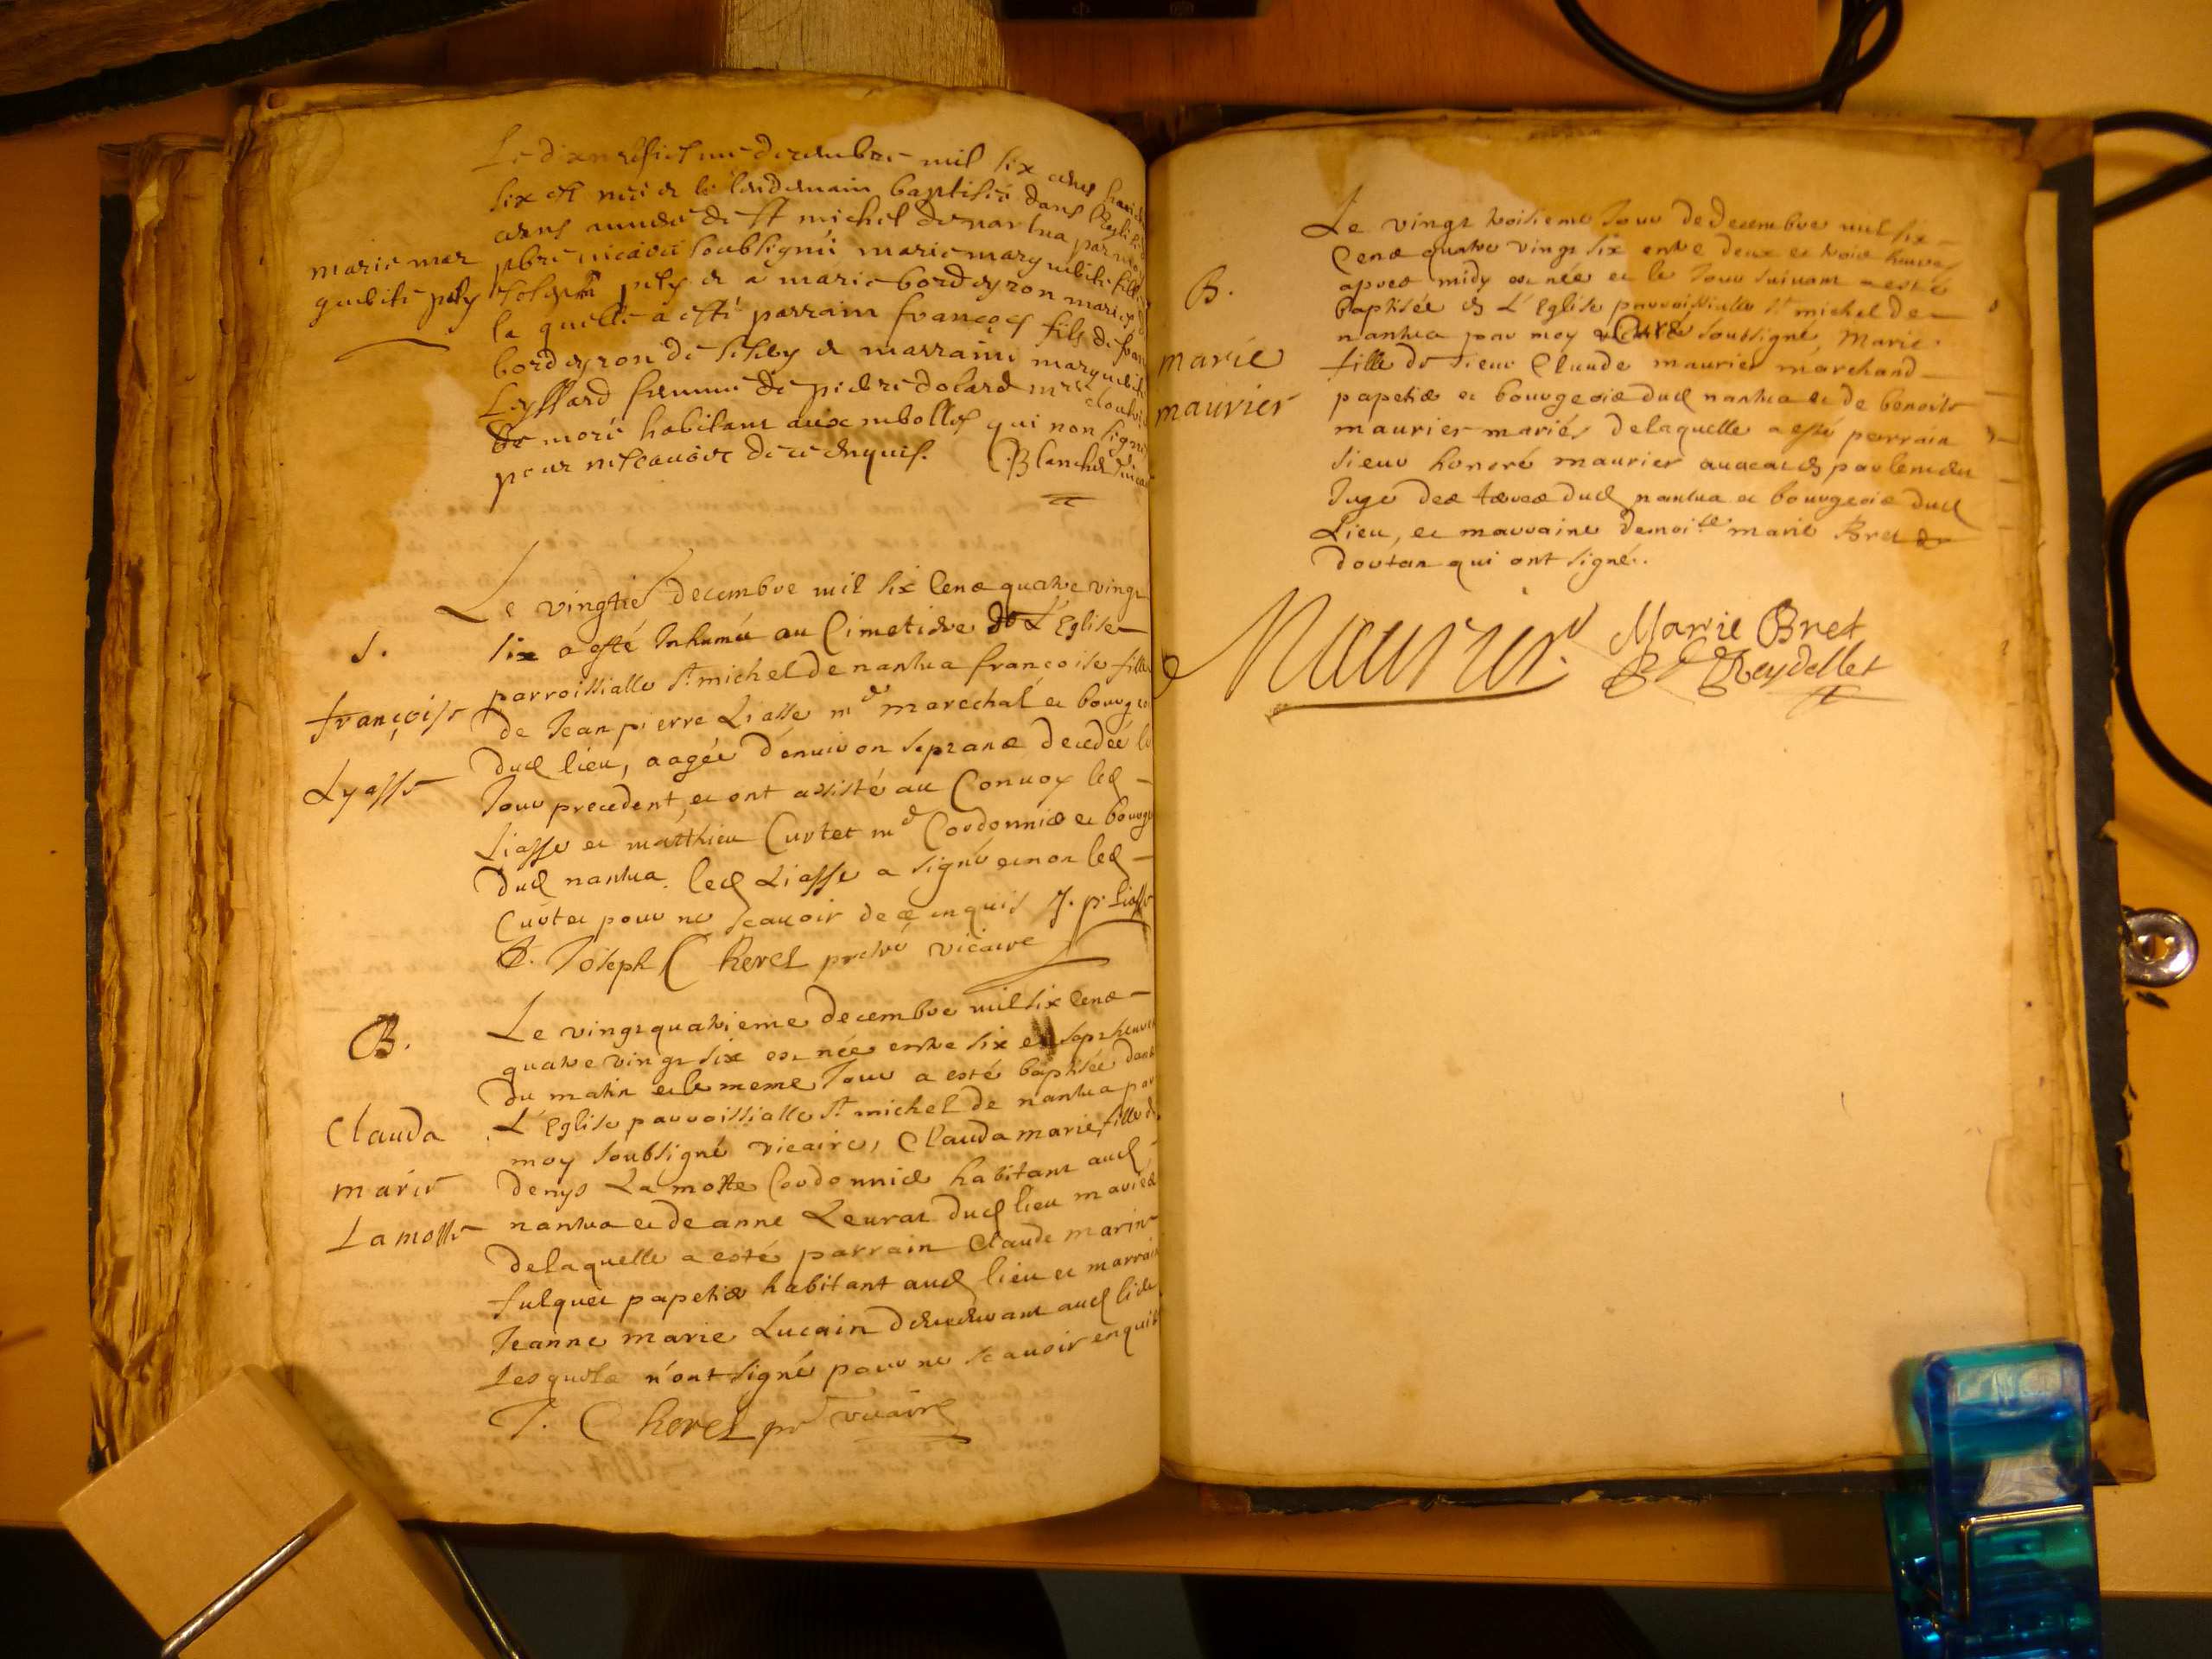 Le dixneufiesme decembre mil six cens
six est née et le lendemain baptisée dans l'Eglise
de St michel de nantua par moy
marie mar
pbre vicaire soubsigné marie marguerite fille
guerite pely
Joseph pely et a marie borderyron mariés
la quelle a esté parrain françois fils de
borderyron de et marraine marguerite
Leyssard femme de pierre dolard
de moré habitant aux qui non signé
pour ne scavoir de ce enquis. Blanchet vica
Le vingtie decembre mil six cens quatre vingt
S.
six a esté Inhumée au Cimetiere de L'Eglise
parroissialle St michel de nantua françoise fille
françoise
de Jean pierre Liasse md marechal et bourgeo
Lyasse
dud lieu, aagée d'environ sept ans decedée le
Jour precedent, et ont assisté au Convoy led
Liasse et matthieu Curtet md Cordonnier et bourg
dud nantua. led Liasse a signé et non led
Curtet pour ne scavoir de ce enquis J. p. Liasse
Joseph Cheret prestre vicaire
B.
Le vingt quatrieme decembre mil six cens
quatre vingt six est née entre six et sept heures
du matin et le meme Jour a esté baptisée dans
Clauda
L'Eglise parroissialle St michel de nantua par
moy soubsigné vicaire, Clauda marie fille de
marie
denys La motte Cordonnier habitant aud
Lamotte
nantua et de anne Leurat dud lieu mariés
de laquelle a esté parrain Claude marin
fulquet papetier habitant aud lieu et marrain
Jeanne marie Lucain demeurant aud lieu
lesquels n'ont signé pour ne scavoir enquis
J. Cheret pr vicaire
Le vingt troisieme Jour de decembre mil six
Cens quatre vingt six entre deux et trois heures
B.
apres midy est née et le Jour suivant a esté
baptisée en L'Eglise parroissialle St michel de
nantua par moy Curé soubsigné, Marie
marie
fille de sieur Claude maurier marchand
maurier
papetier et bourgeois dud nantua et de benoite
maurier mariés de laquelle a esté parrain
sieur honoré maurier avocat en parlement
Juge des terres dud nantua et bourgeois dud
Lieu, et marraine demoille marie Bret de
dortan qui ont signé.
Maurier. Marie Bret
Reydellet